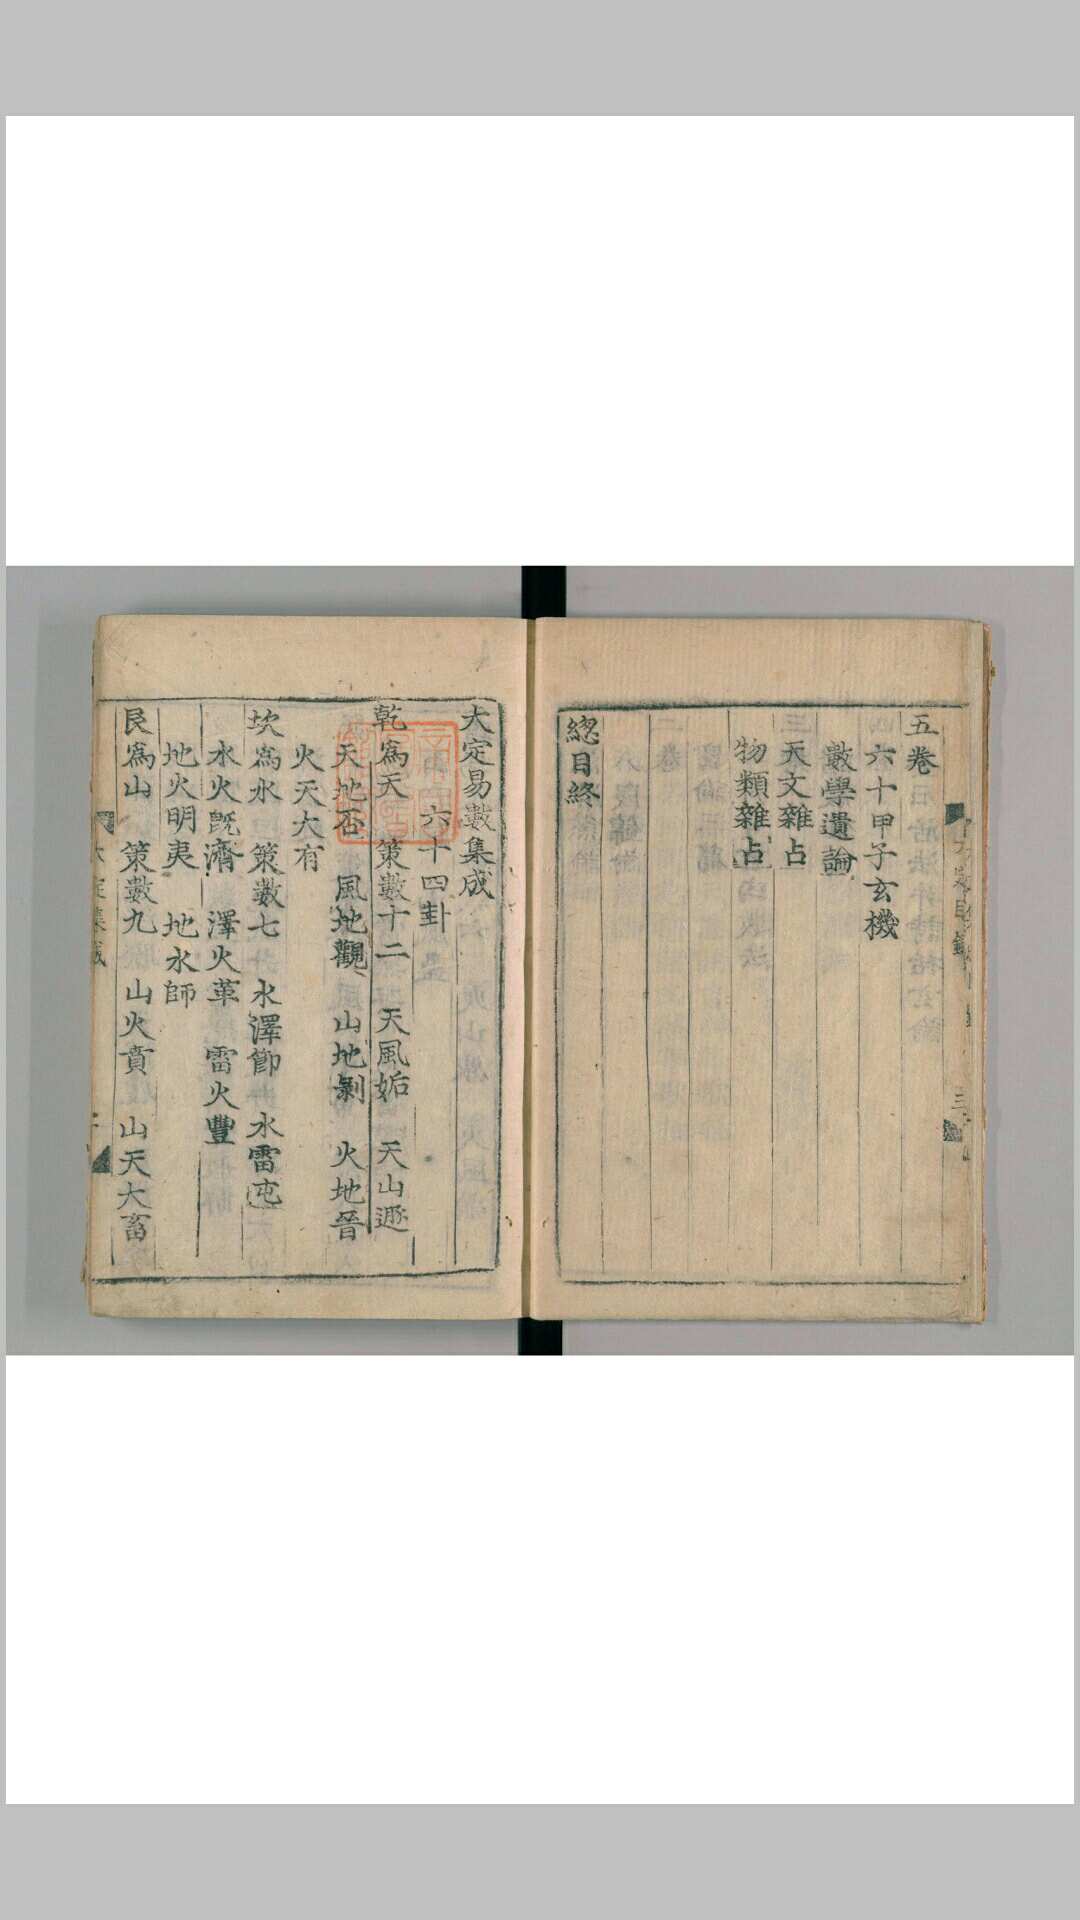 五卷
六十甲子玄機
數學遺論
天文雜占
物類雜占
緫目終
大定易數集成
六十四卦
乾爲天 策數十二 天風姤 天山遯
天地否 風地觀 山地剝 火地晉
火天大有
坎爲水 策數七 水澤節 水雷屯
水火旣濟 澤火革 雷火豐
地火明夷 地水師
艮爲山 策數九 山火賁 山天大畜